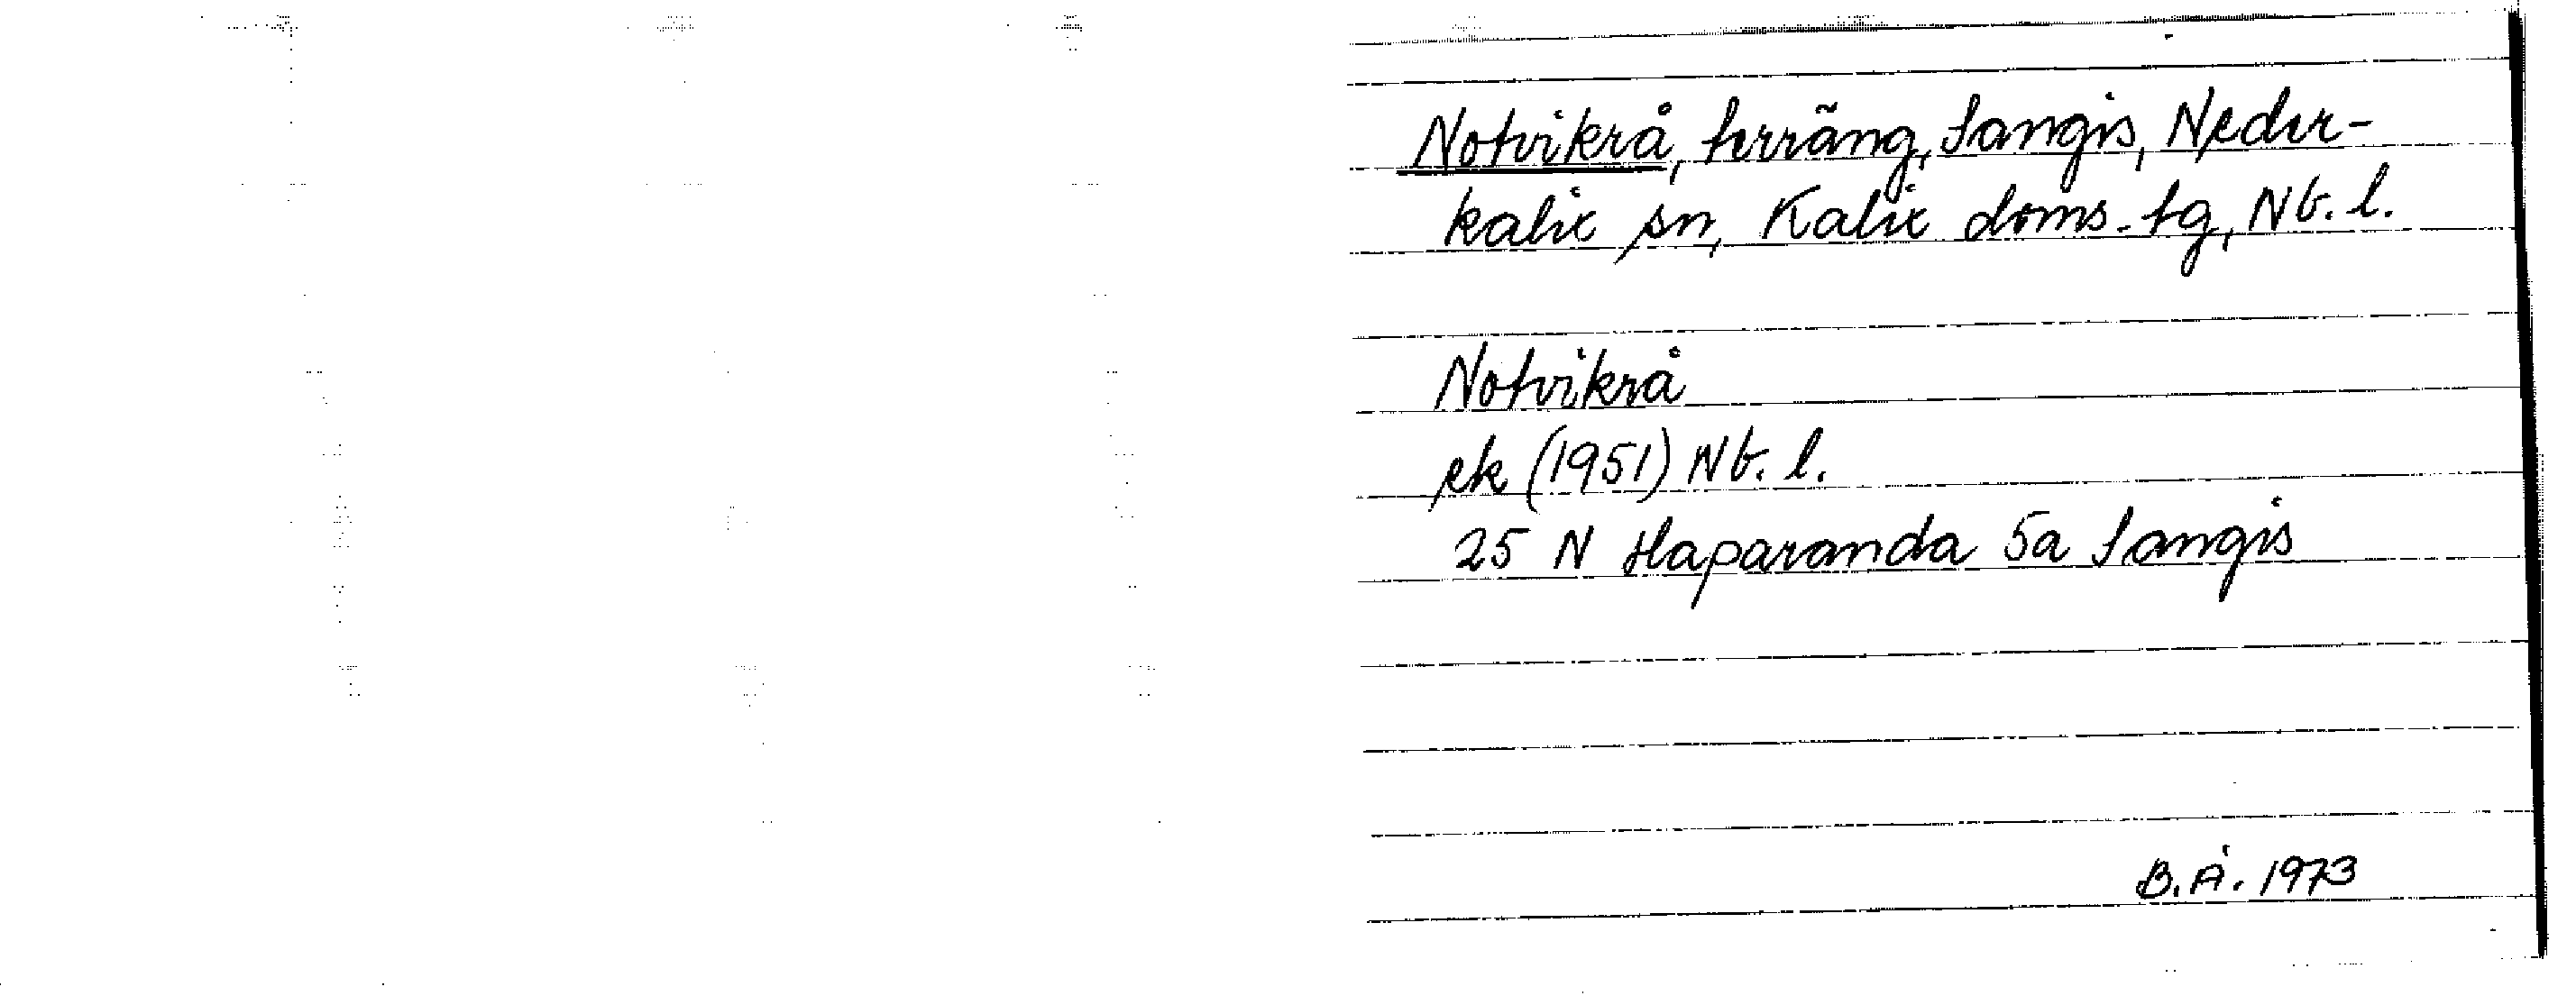 Notvikrå, terräng, Sangis, Neder-
kalix sn, Kalix doms. tg, Nb. l.
Notvikrå
ek (1951) Nb. l.
25 N Haparanda 5a Sangis
B.Å. 1973